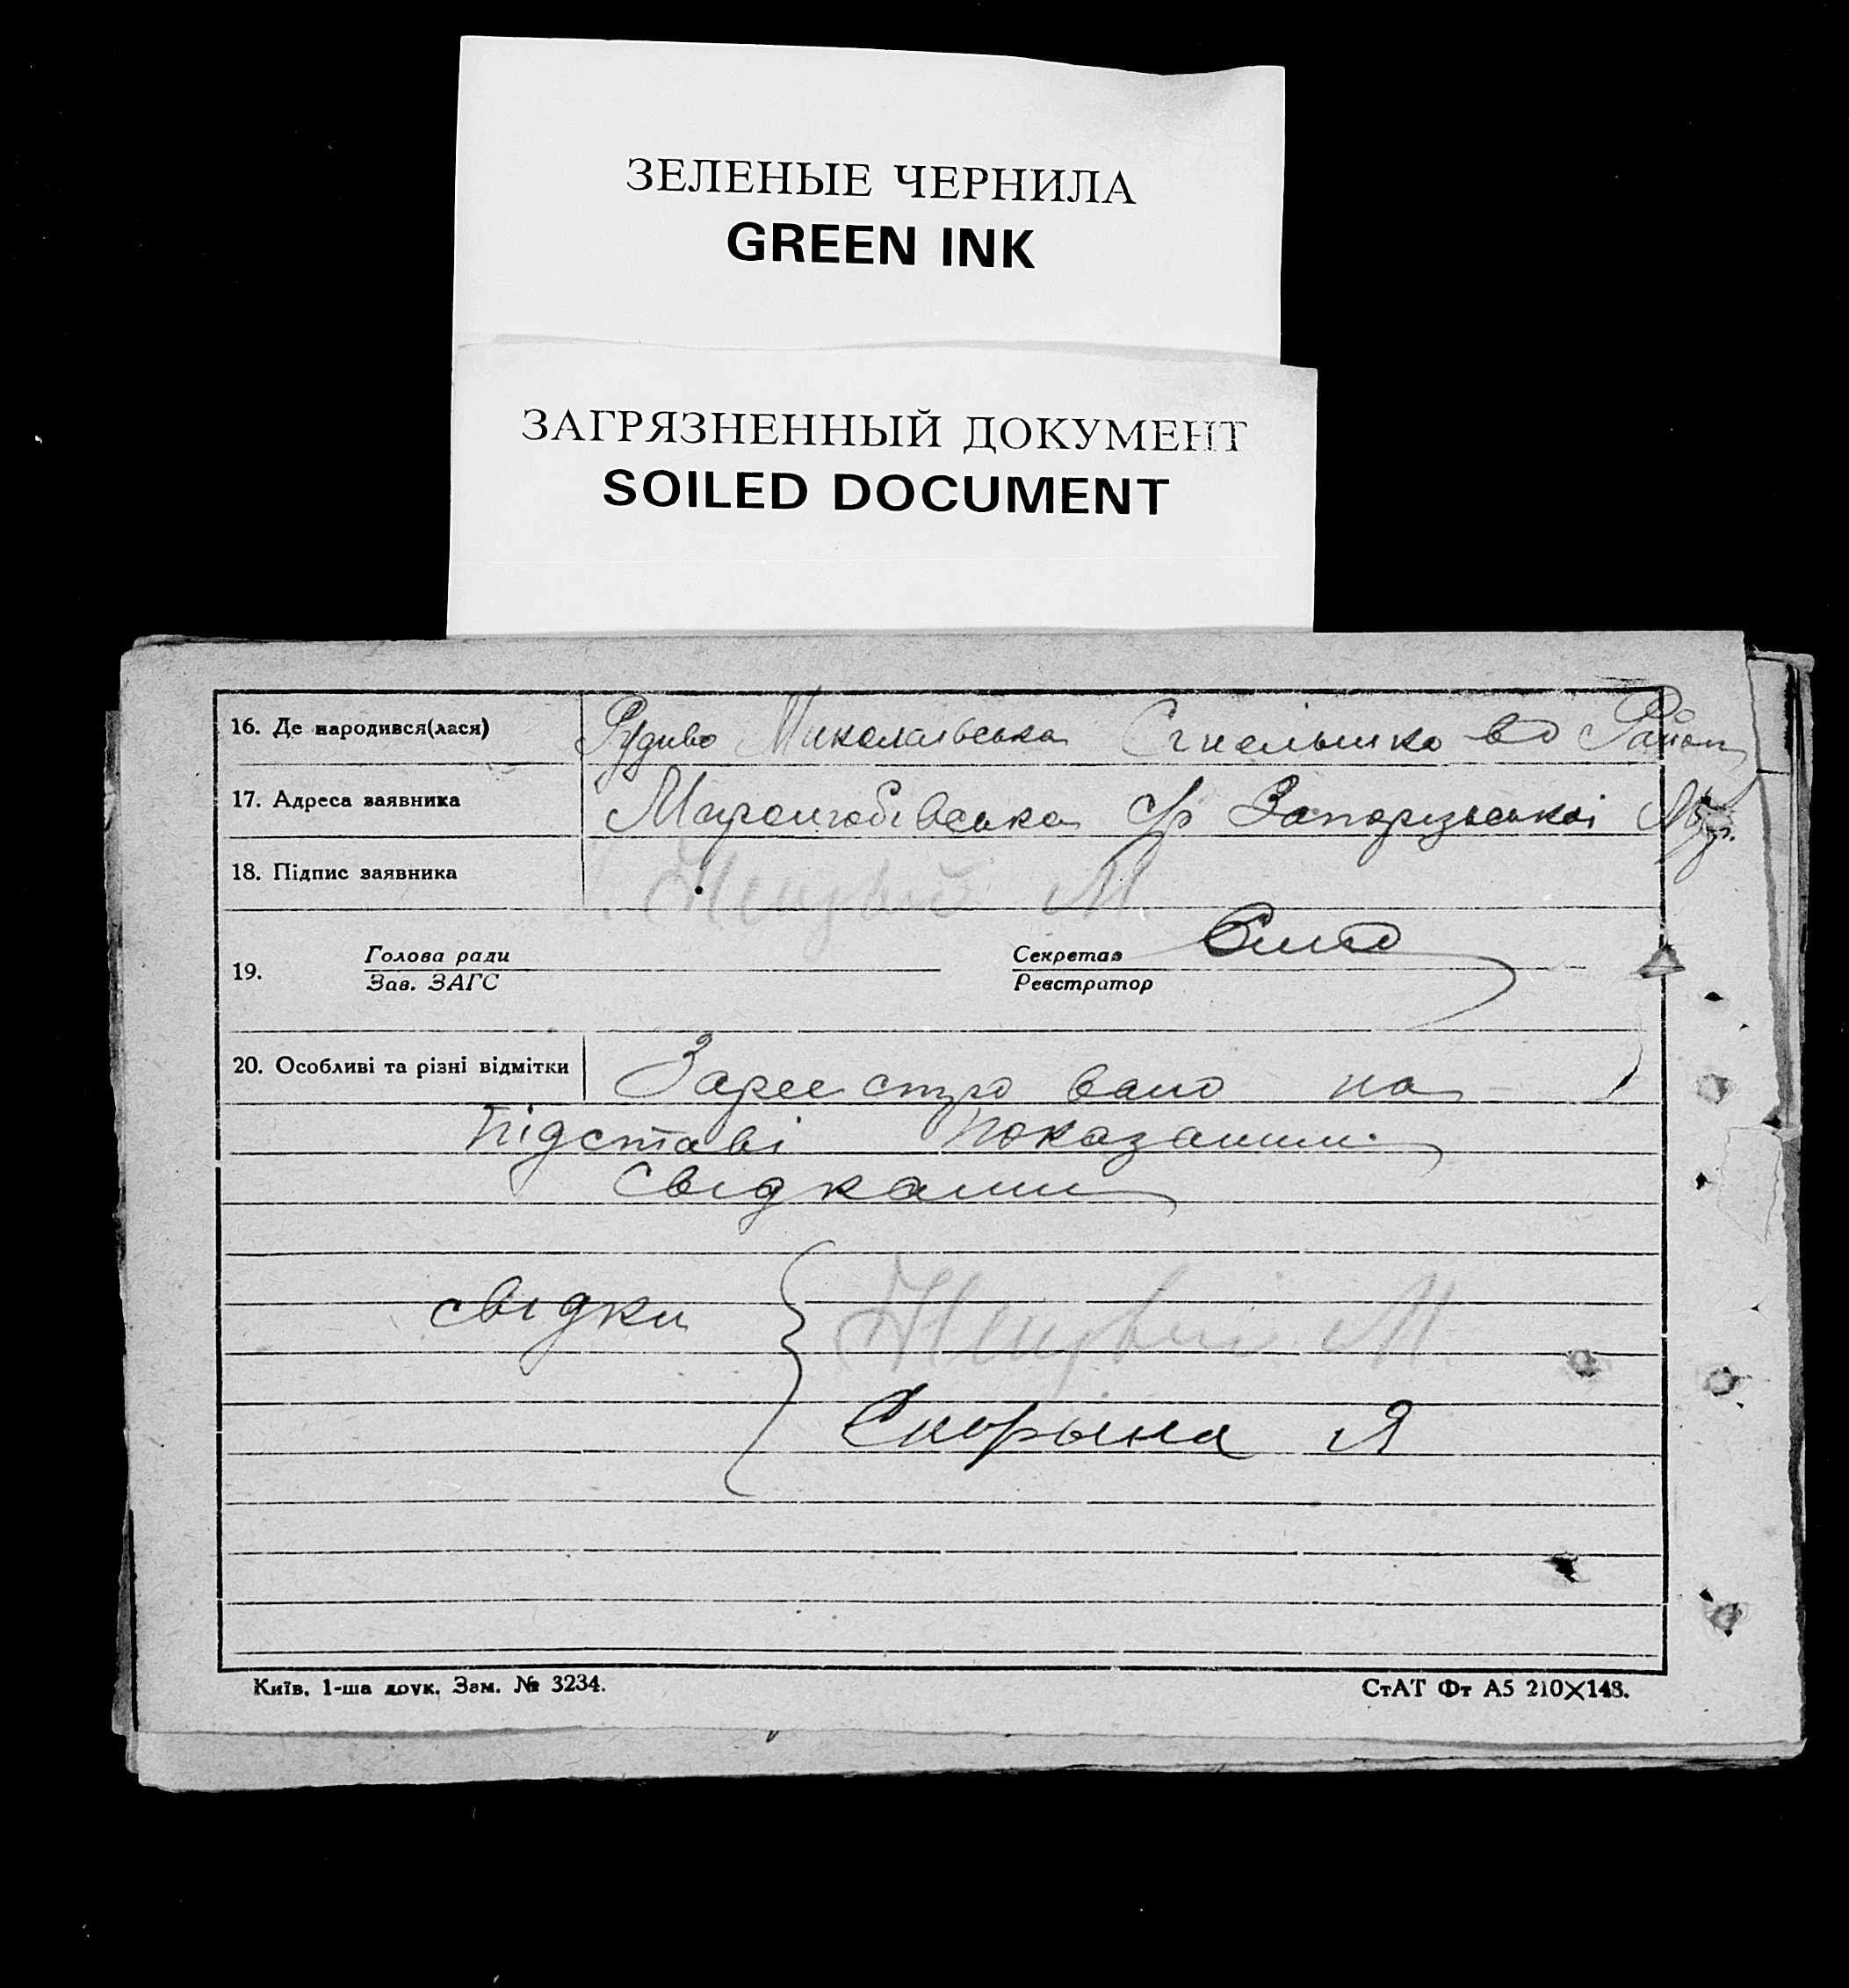 ЗЕЛЕНЫЕ ЧЕРНИЛА
GREEN INK
ЗАГРЯЗНЕННЫЙ ДОКУМЕНТ
SOILED DOCUMENT
16. Де народився(лася) Рудиво Миколаївська
17. Адреса заявника с/р Запорізької
18. Підпис заявника М.
19. Голова ради Секретар
Зав. ЗАГС Реєстратор
20. Особливі та різні відмітки Зареєстровано на
підставі показанни
свідками
свідки М.
Скорына Я
Київ. 1-ша друк. Зам. № 3234. СтАТ Фт А5 210×148.